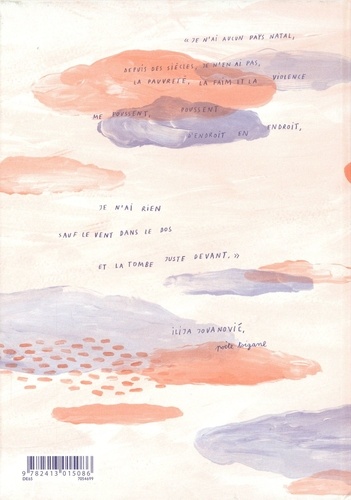 « JE N'AI AUCUN PAYS NATAL,
DEPUIS DES SIÈCLES, JE N'EN AI PAS,
LA PAUVRETÉ, LA FAIM ET LA VIOLENCE
ME POUSSENT, POUSSENT
D'ENDROIT EN ENDROIT,
JE N'AI RIEN
SAUF LE VENT DANS LE DOS
ET LA TOMBE JUSTE DEVANT. »
ILIJA JOVANOVIĆ,
poète tzigane
9 782413 015086
7054699